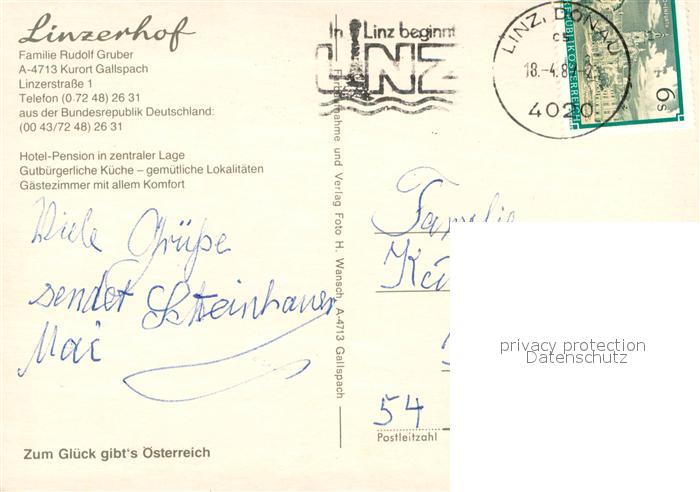 Linzerhof
Familie Rudolf Gruber
A-4713 Kurort Gallspach
Linzerstraße 1
Telefon (0 72 48) 26 31
aus der Bundesrepublik Deutschland:
(00 43/72 48) 26 31
Hotel-Pension in zentraler Lage
Gutbürgerliche Küche – gemütliche Lokalitäten
Gästezimmer mit allem Komfort
Viele Grüße
sendet Steinhauer
Zum Glück gibt's Österreich
Verlag Foto H. Wansch, A-4713 Gallspach
In Linz beginnt
LINZ
LINZ, DONAU
18.-4.8
4020
REPUBLIK ÖSTERREICH
6s
Familie
54
Postleitzahl
privacy protection
Datenschutz